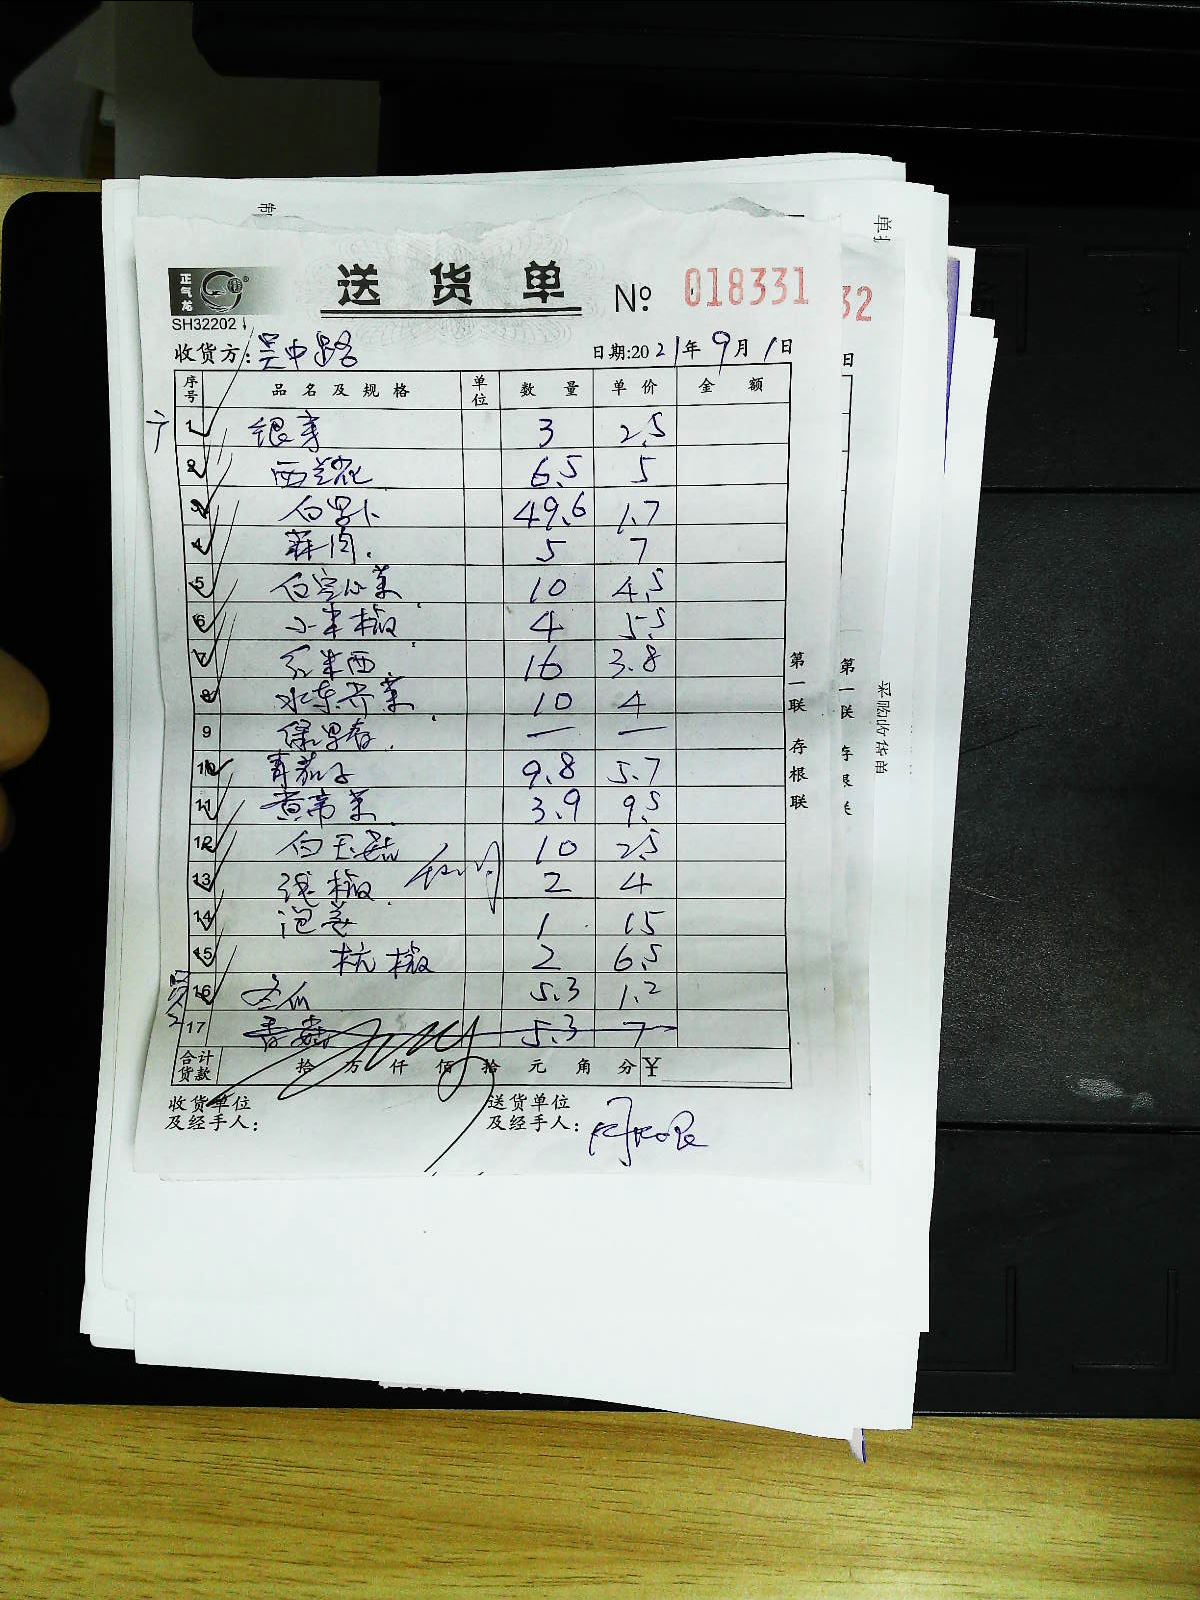 正气龙
送货单 № 018331
32
SH32202
收货方: 吴中路 日期:2021年9月1日
日
序号 品名及规格 单位 数量 单价 金额
1 银芽 3 2.5
2 西兰花 6.5 5
3 白萝卜 49.6 1.7
4 蒜肉 5 7
5 白空心菜 10 4.5
6 小米椒 4 5.5
7 16 3.8
8 水东芥菜 10 4
9 — —
10 青茄子 9.8 5.7
11 黄帝菜 3.9 9.5
12 白玉菇 10 2.5
13 线椒 2 4
14 泡姜 1 15
15 杭椒 2 6.5
16 冬瓜 5.3 1.2
17 5.3 7
合计货款 拾 万 仟 佰 拾 元 角 分 ¥
收货单位 送货单位
及经手人: 及经手人:
第一联 存根联
第一联
采购收货单